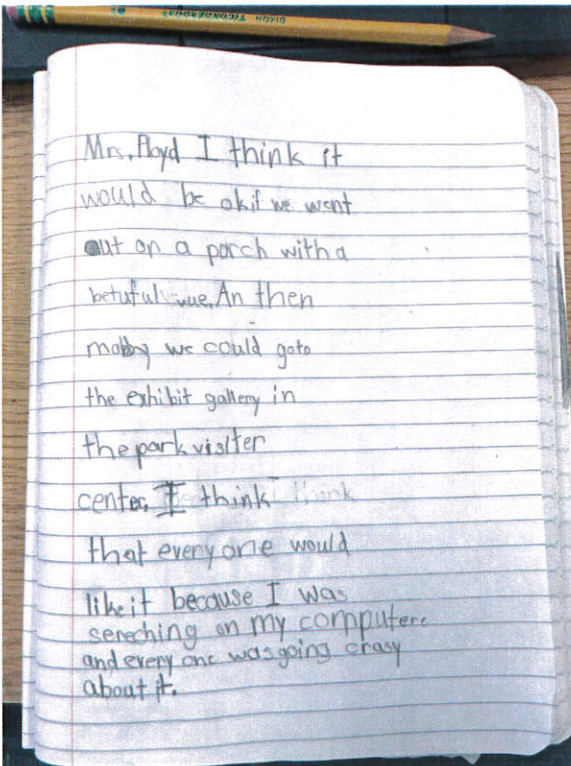 DIXON TICONDEROGA
Mrs. Floyd I think it
would be ok if we went
out on a porch with a
betuful vue. An then
mabby we could goto
the exhibit gallery in
the park visiter
center. I think
that every one would
like it because I was
sereching on my computere
and every one was going crasy
about it.